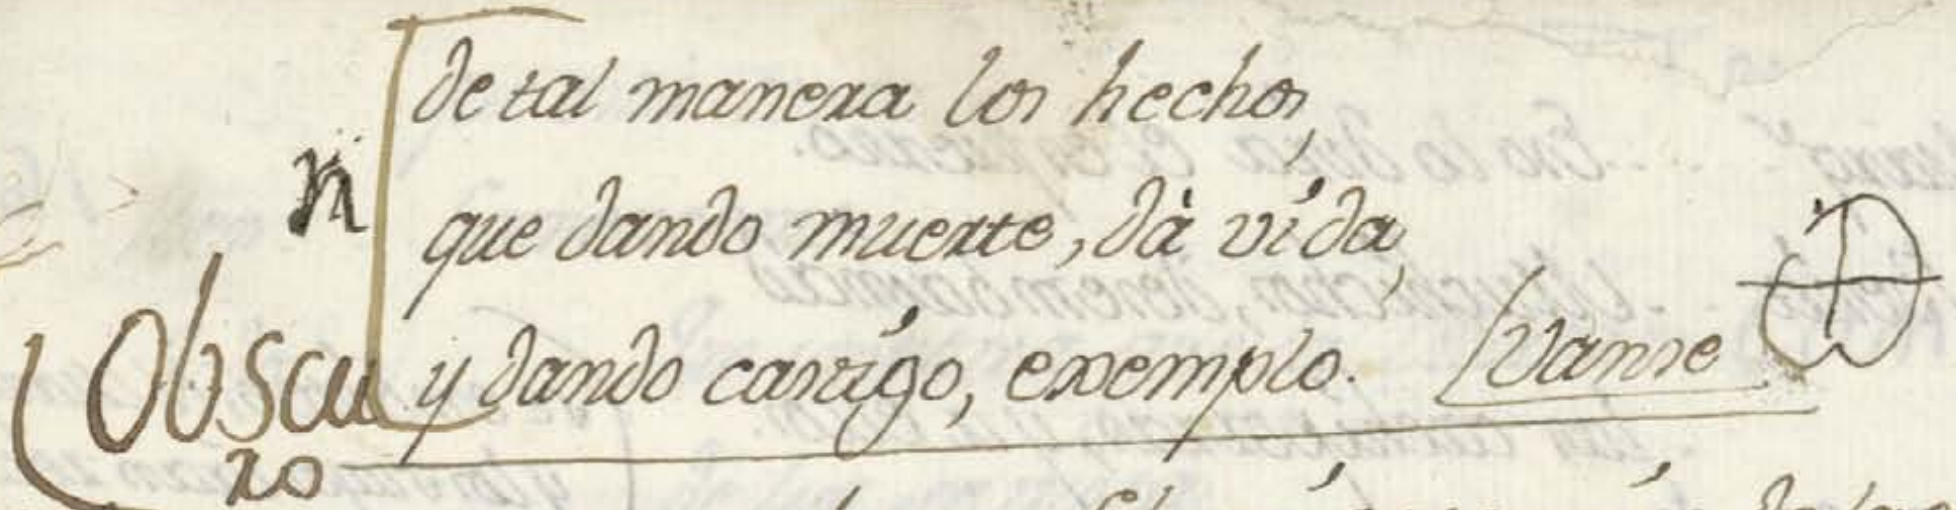 de tal manera los hechos,
n
que dando muerte, dà vida,
Obscu
y dando castigo, exemplo. Vanse
ro